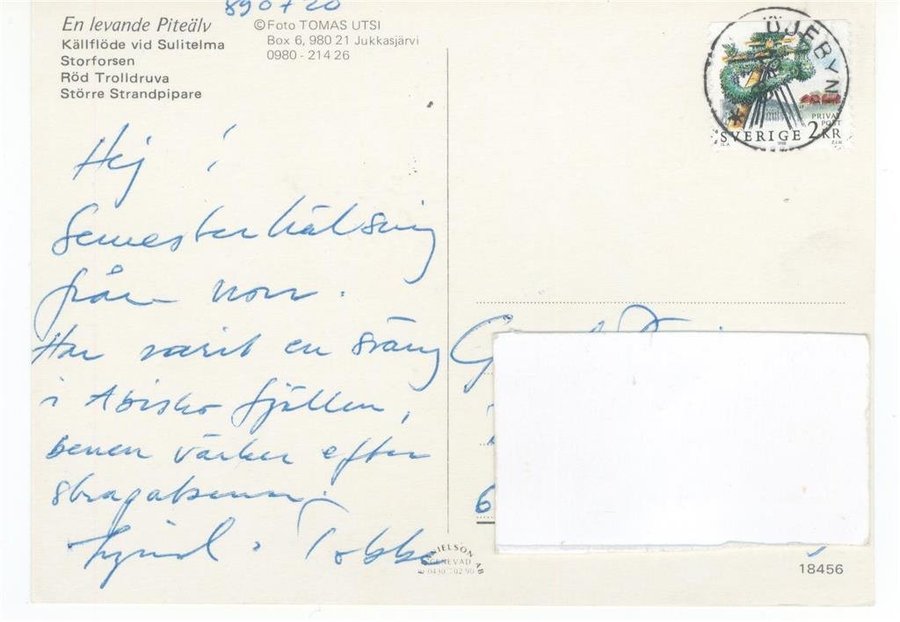 890720
En levande Piteälv
Källflöde vid Sulitelma
Storforsen
Röd Trolldruva
Större Strandpipare
©Foto TOMAS UTSI
Box 6, 980 21 Jukkasjärvi
0980 - 214 26
ÖJEBYN
PRIVAT
POST
SVERIGE 2 KR
Hej !
Semesterhälsning
från norr.
Har varit en sväng
i Abisko fjällen,
benen värker efter
strapatserna.
Tobbe
6
DANIELSON
GENEVAD AB
18456